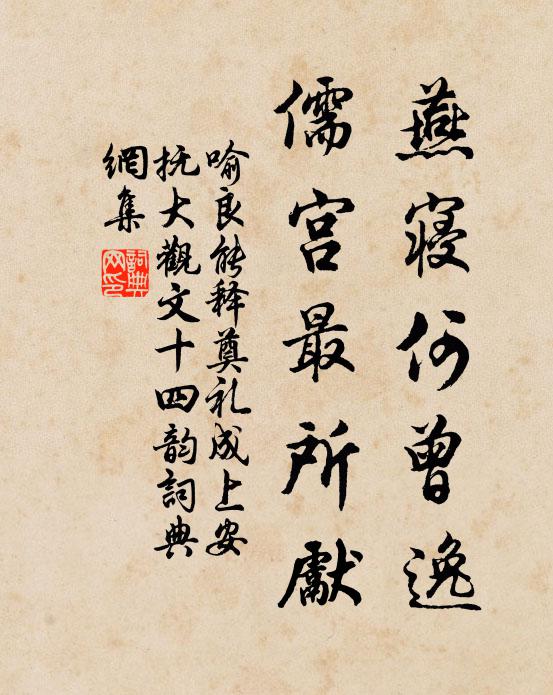 燕寝何曾逸
儒宫最所獻
喻良能释奠礼成上安
抚大觀文十四韵詞典
網集
詞典
网印